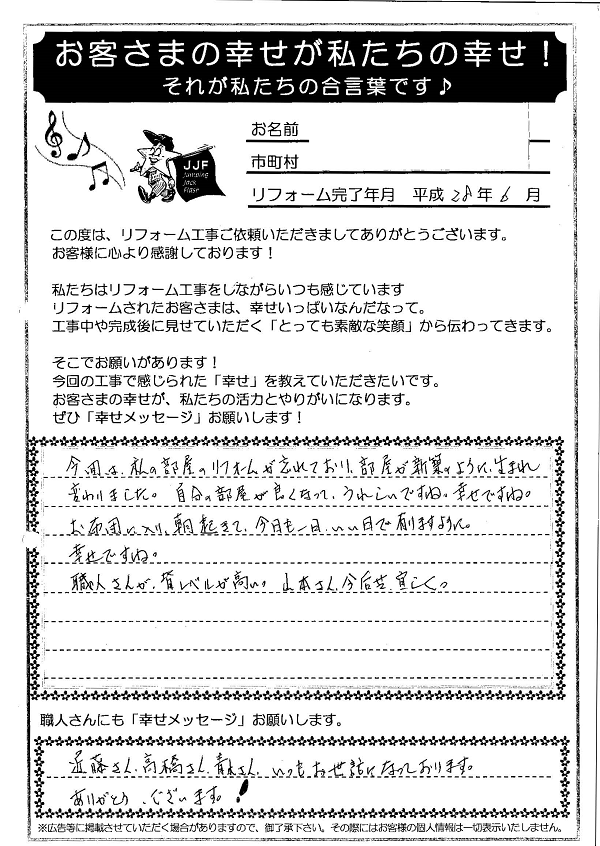 お客さまの幸せが私たちの幸せ！
それが私たちの合言葉です♪
JJF
Jumping
Jack
Flash
お名前
市町村
リフォーム完了年月 平成28年6月
この度は、リフォーム工事ご依頼いただきましてありがとうございます。
お客様に心より感謝しております！
私たちはリフォーム工事をしながらいつも感じています
リフォームされたお客さまは、幸せいっぱいなんだなって。
工事中や完成後に見せていただく「とっても素敵な笑顔」から伝わってきます。
そこでお願いがあります！
今回の工事で感じられた「幸せ」を教えていただきたいです。
お客さまの幸せが、私たちの活力とやりがいになります。
ぜひ「幸せメッセージ」お願いします！
今回は、私の部屋のリフォームが 、部屋が新築のように、生まれ
変わりました。自分の部屋が良くなって、うれしいですね。幸せですね。
お布団に入り、朝起きて、今日も一日、いい日で有りますように。
幸せですね。
職人さんが、皆レベルが高い。山本さん、今后共、宜しくっ
職人さんにも「幸せメッセージ」お願いします。
近藤さん、高橋さん、青木さん、いつもお世話になっております。
ありがとうございます。！
※広告等に掲載させていただく場合がありますので、御了承下さい。その際にはお客様の個人情報は一切表示いたしません。